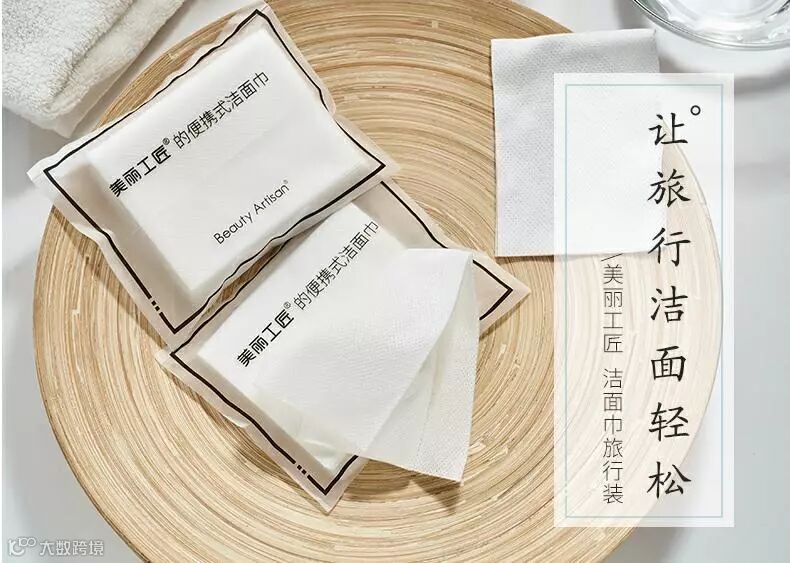 美丽工匠®的便携式洁面巾
Beauty Artisan®
美丽工匠®的便携式洁面巾
让旅行洁面轻松
美丽工匠 洁面巾旅行装
大数跨境